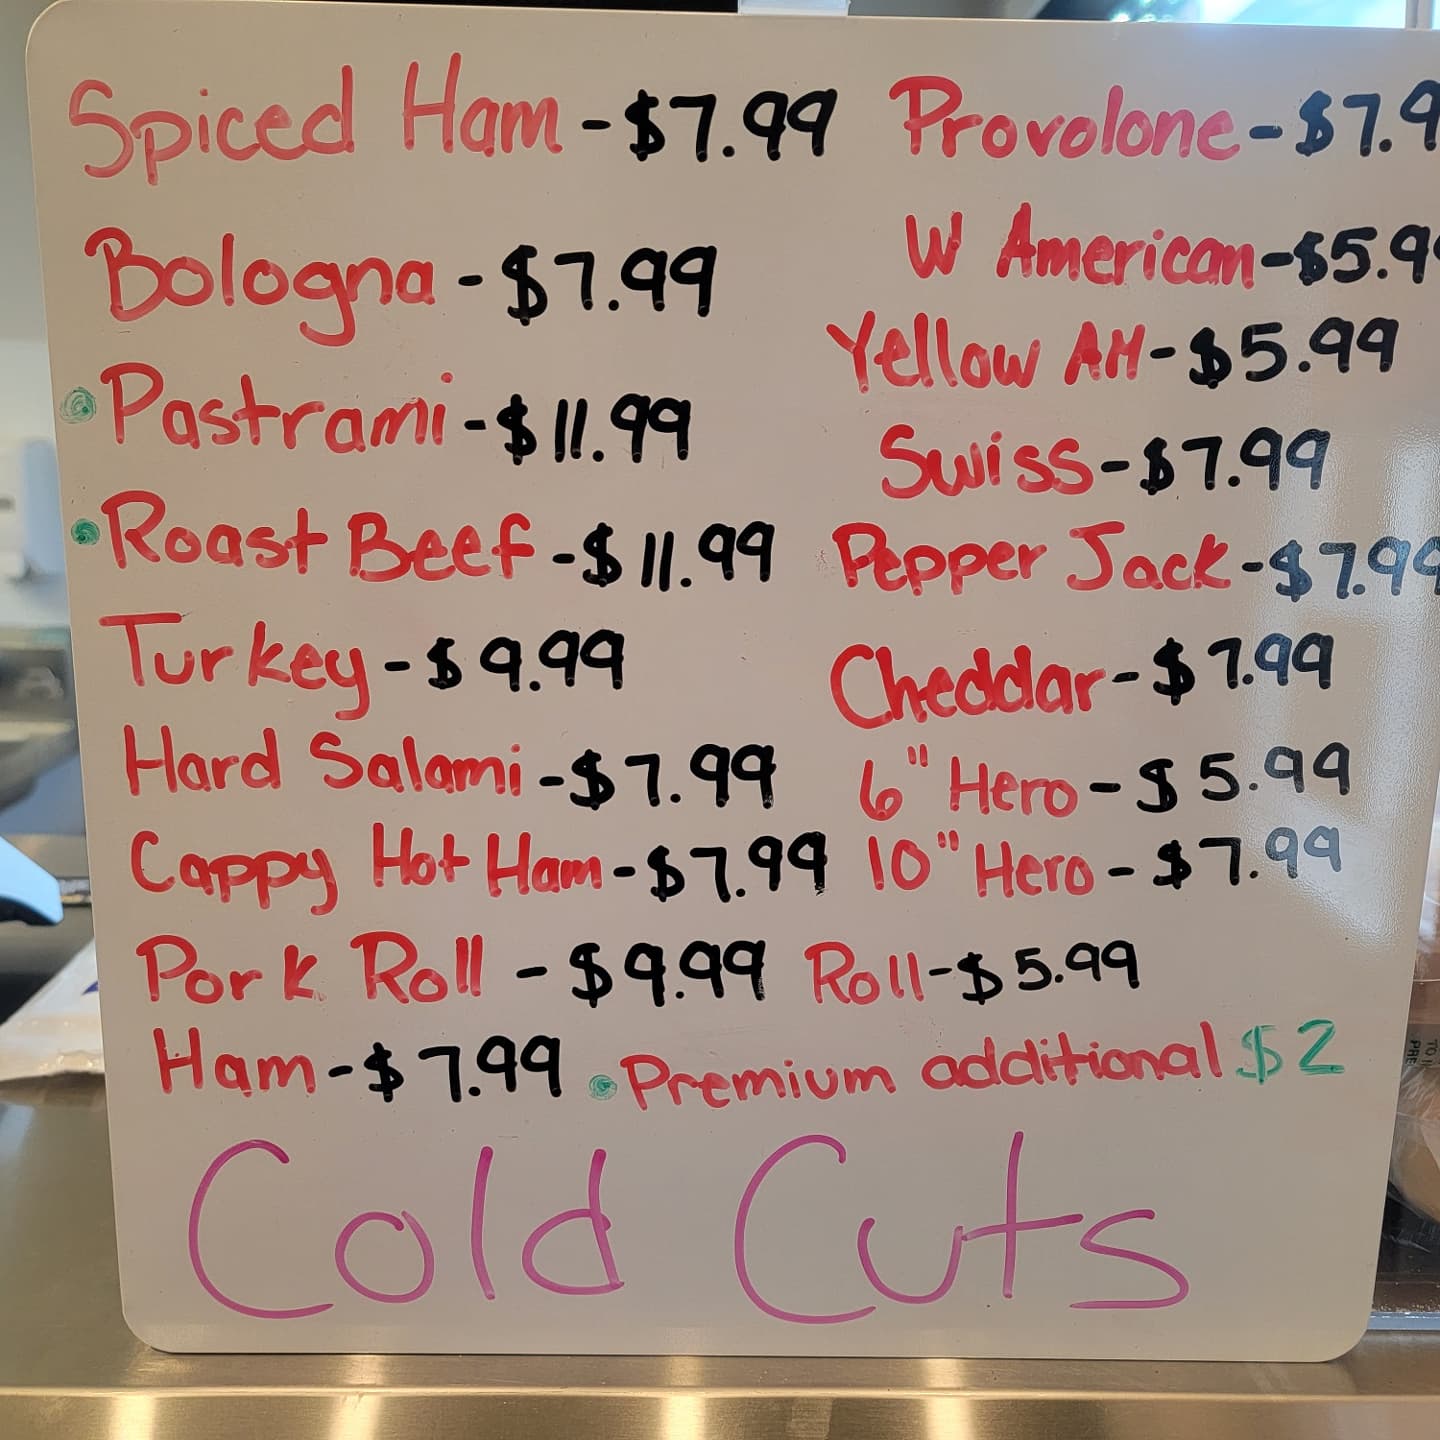 Spiced Ham - $7.99
Bologna - $7.99
Pastrami - $11.99
Roast Beef - $11.99
Turkey - $9.99
Hard Salami - $7.99
Cappy Hot Ham - $7.99
Pork Roll - $9.99
Ham - $7.99
Provolone - $7.9
W American - $5.9
Yellow AM - $5.99
Swiss - $7.99
Pepper Jack - $7.99
Cheddar - $7.99
6" Hero - $5.99
10" Hero - $7.99
Roll - $5.99
• Premium additional $2
Cold Cuts